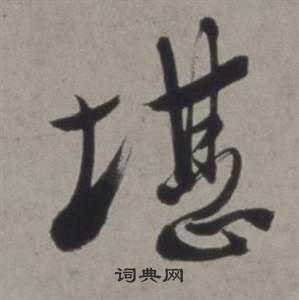 堪
词典网